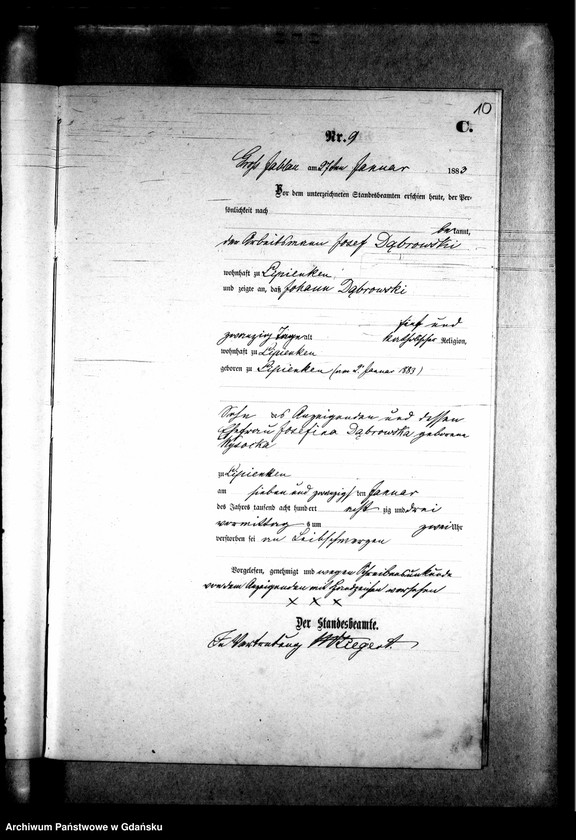 10
C.
Nr. 9
Groß Jablau am 27ten Januar 1883
Vor dem unterzeichneten Standesbeamten erschien heute, der Per-
sönlichkeit nach
bekannt,
der Arbeitsmann Josef Dąbrowski
wohnhaft zu Lipienken
und zeigte an, daß Johann Dąbrowski
fünf und
zwanzig Tage alt katholischer Religion,
wohnhaft zu Lipienken
geboren zu Lipienken (am 2 Januar 1883)
Sohn des Anzeigenden und dessen
Ehefrau Josefina Dąbrowska geborene
Wysocka
zu Lipienken
am sieben und zwanzigsten Januar
des Jahres tausend acht hundert acht zig und drei
vormittag um zwei Uhr
verstorben sei an Leibschmerzen
Vorgelesen, genehmigt und wegen Schreibensunkunde
von dem Anzeigenden mit Handzeichen versehen
× × ×
Der Standesbeamte.
In Vertretung Wiegert.
Archiwum Państwowe w Gdańsku